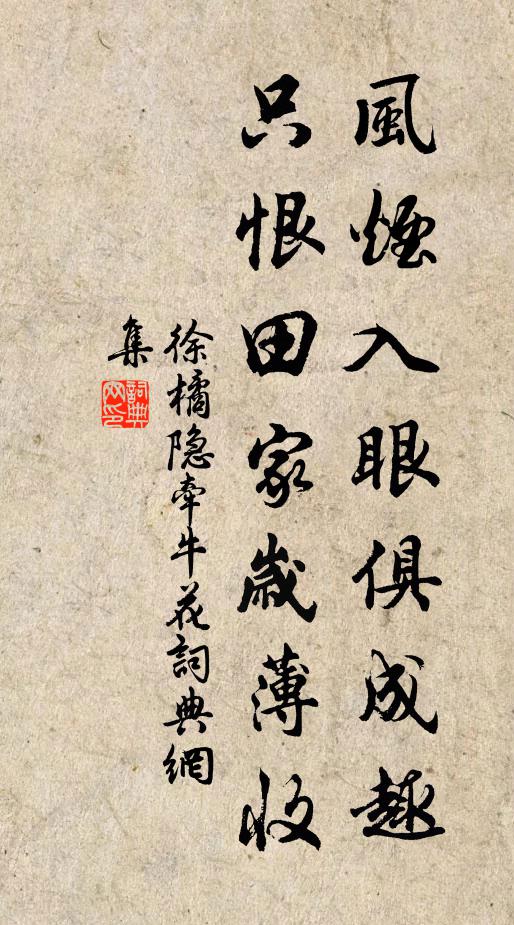 風煙入眼俱成趣
只恨田家歲薄收
徐橘隐牽牛花詞典網
集
詞典
网印